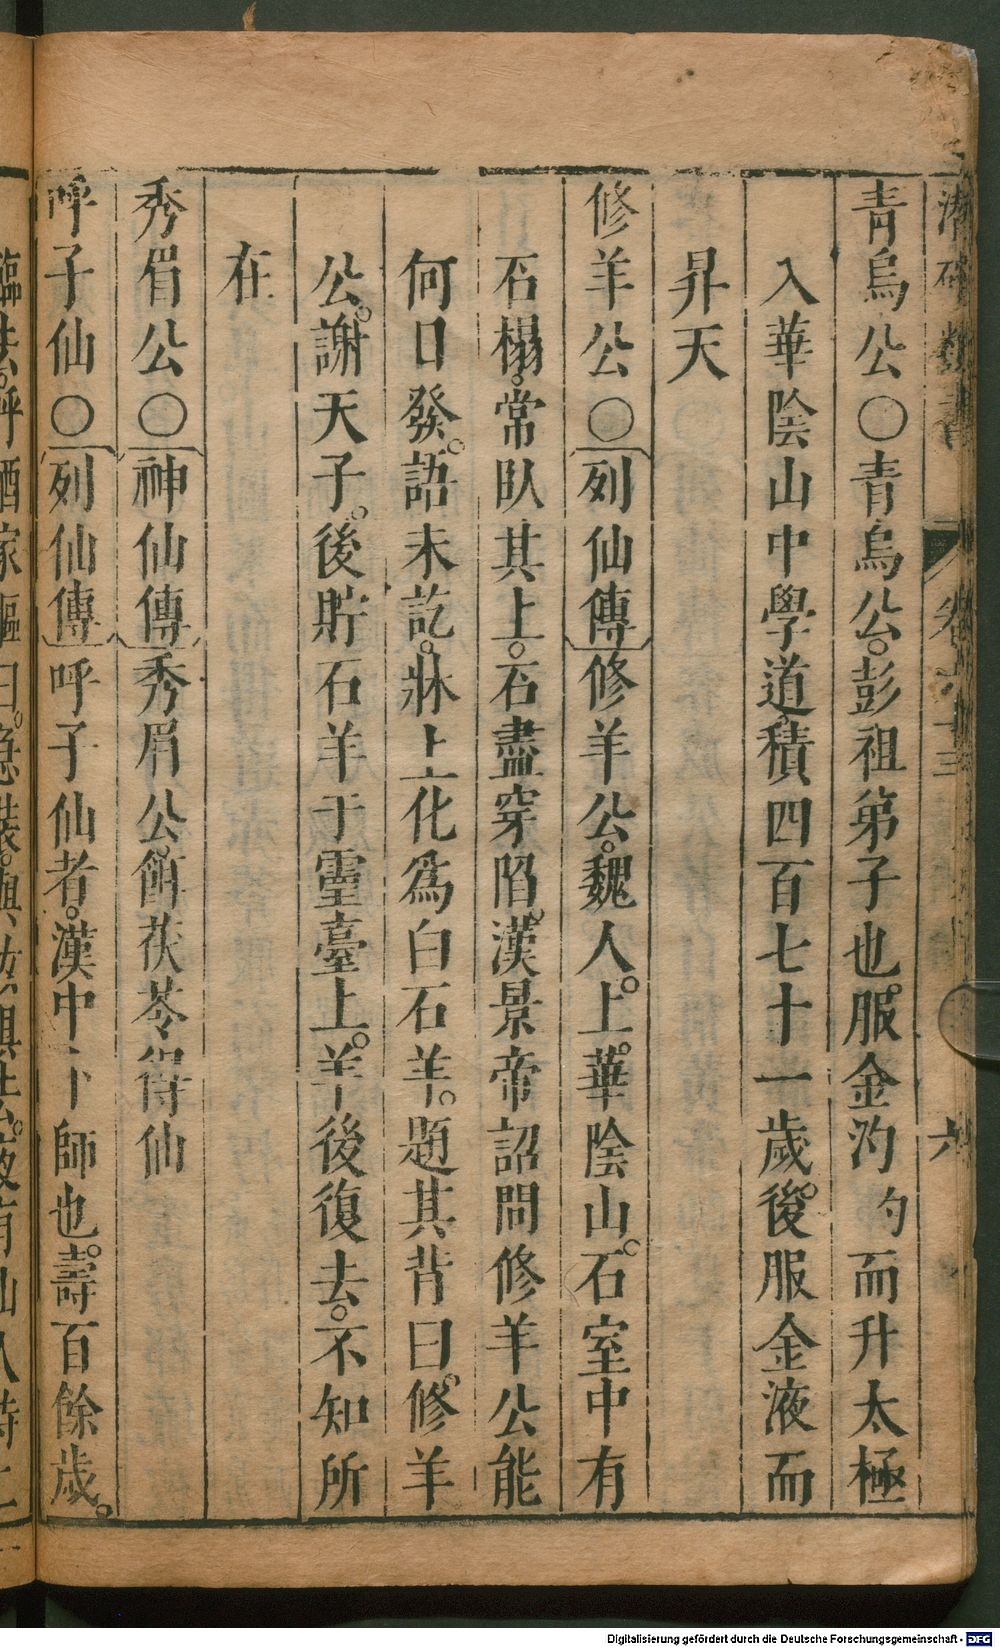 潛確類書 卷六十三 六
青烏公〇青烏公。彭祖弟子也。服金汋 勺而升太極
入華陰山中學道積四百七十一歲。後服金液而
昇天
修羊公〇列仙傳修羊公。魏人。上。華陰山。石室中有
石榻。常臥其上。石盡穿陷。漢景帝詔問修羊公能
何日發。語未訖。牀上化爲白石羊。題其背曰。修羊
公。謝天子。後貯石羊于靈臺上。羊後復去。不知所
在
秀眉公〇神仙傳秀眉公。餌茯苓得仙
呼子仙〇列仙傳呼子仙者。漢中卜師也。壽百餘歲。
臨去。呼酒家嫗曰。急裝。與
有仙人持
Digitalisierung gefördert durch die Deutsche Forschungsgemeinschaft - DFG